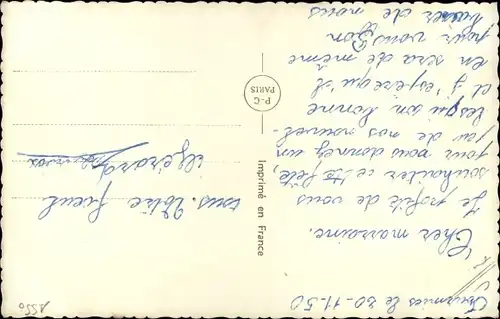 Fourmies le 30-11-50
Cher marraine.
Je profite de vous
souhaiter ce tte fête,
pour vous donnez un
peu de nos nouvel-
les qui son bonne
et j'espere qu'il
en sera de même
pour vous. Bon
baiser de nous
tous. Votre fieul
Gérard
P-C
PARIS
Imprimé en France